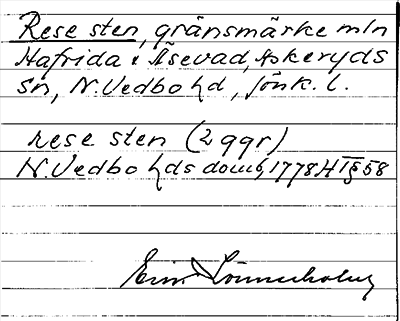 Rese sten, gränsmärke mln
Hafrida & Åsevad, Askeryds
sn, N. Vedbo hd, Jönk. l.
rese sten (2 ggr)
N. Vedbo hds domb, 1778 HT § 58